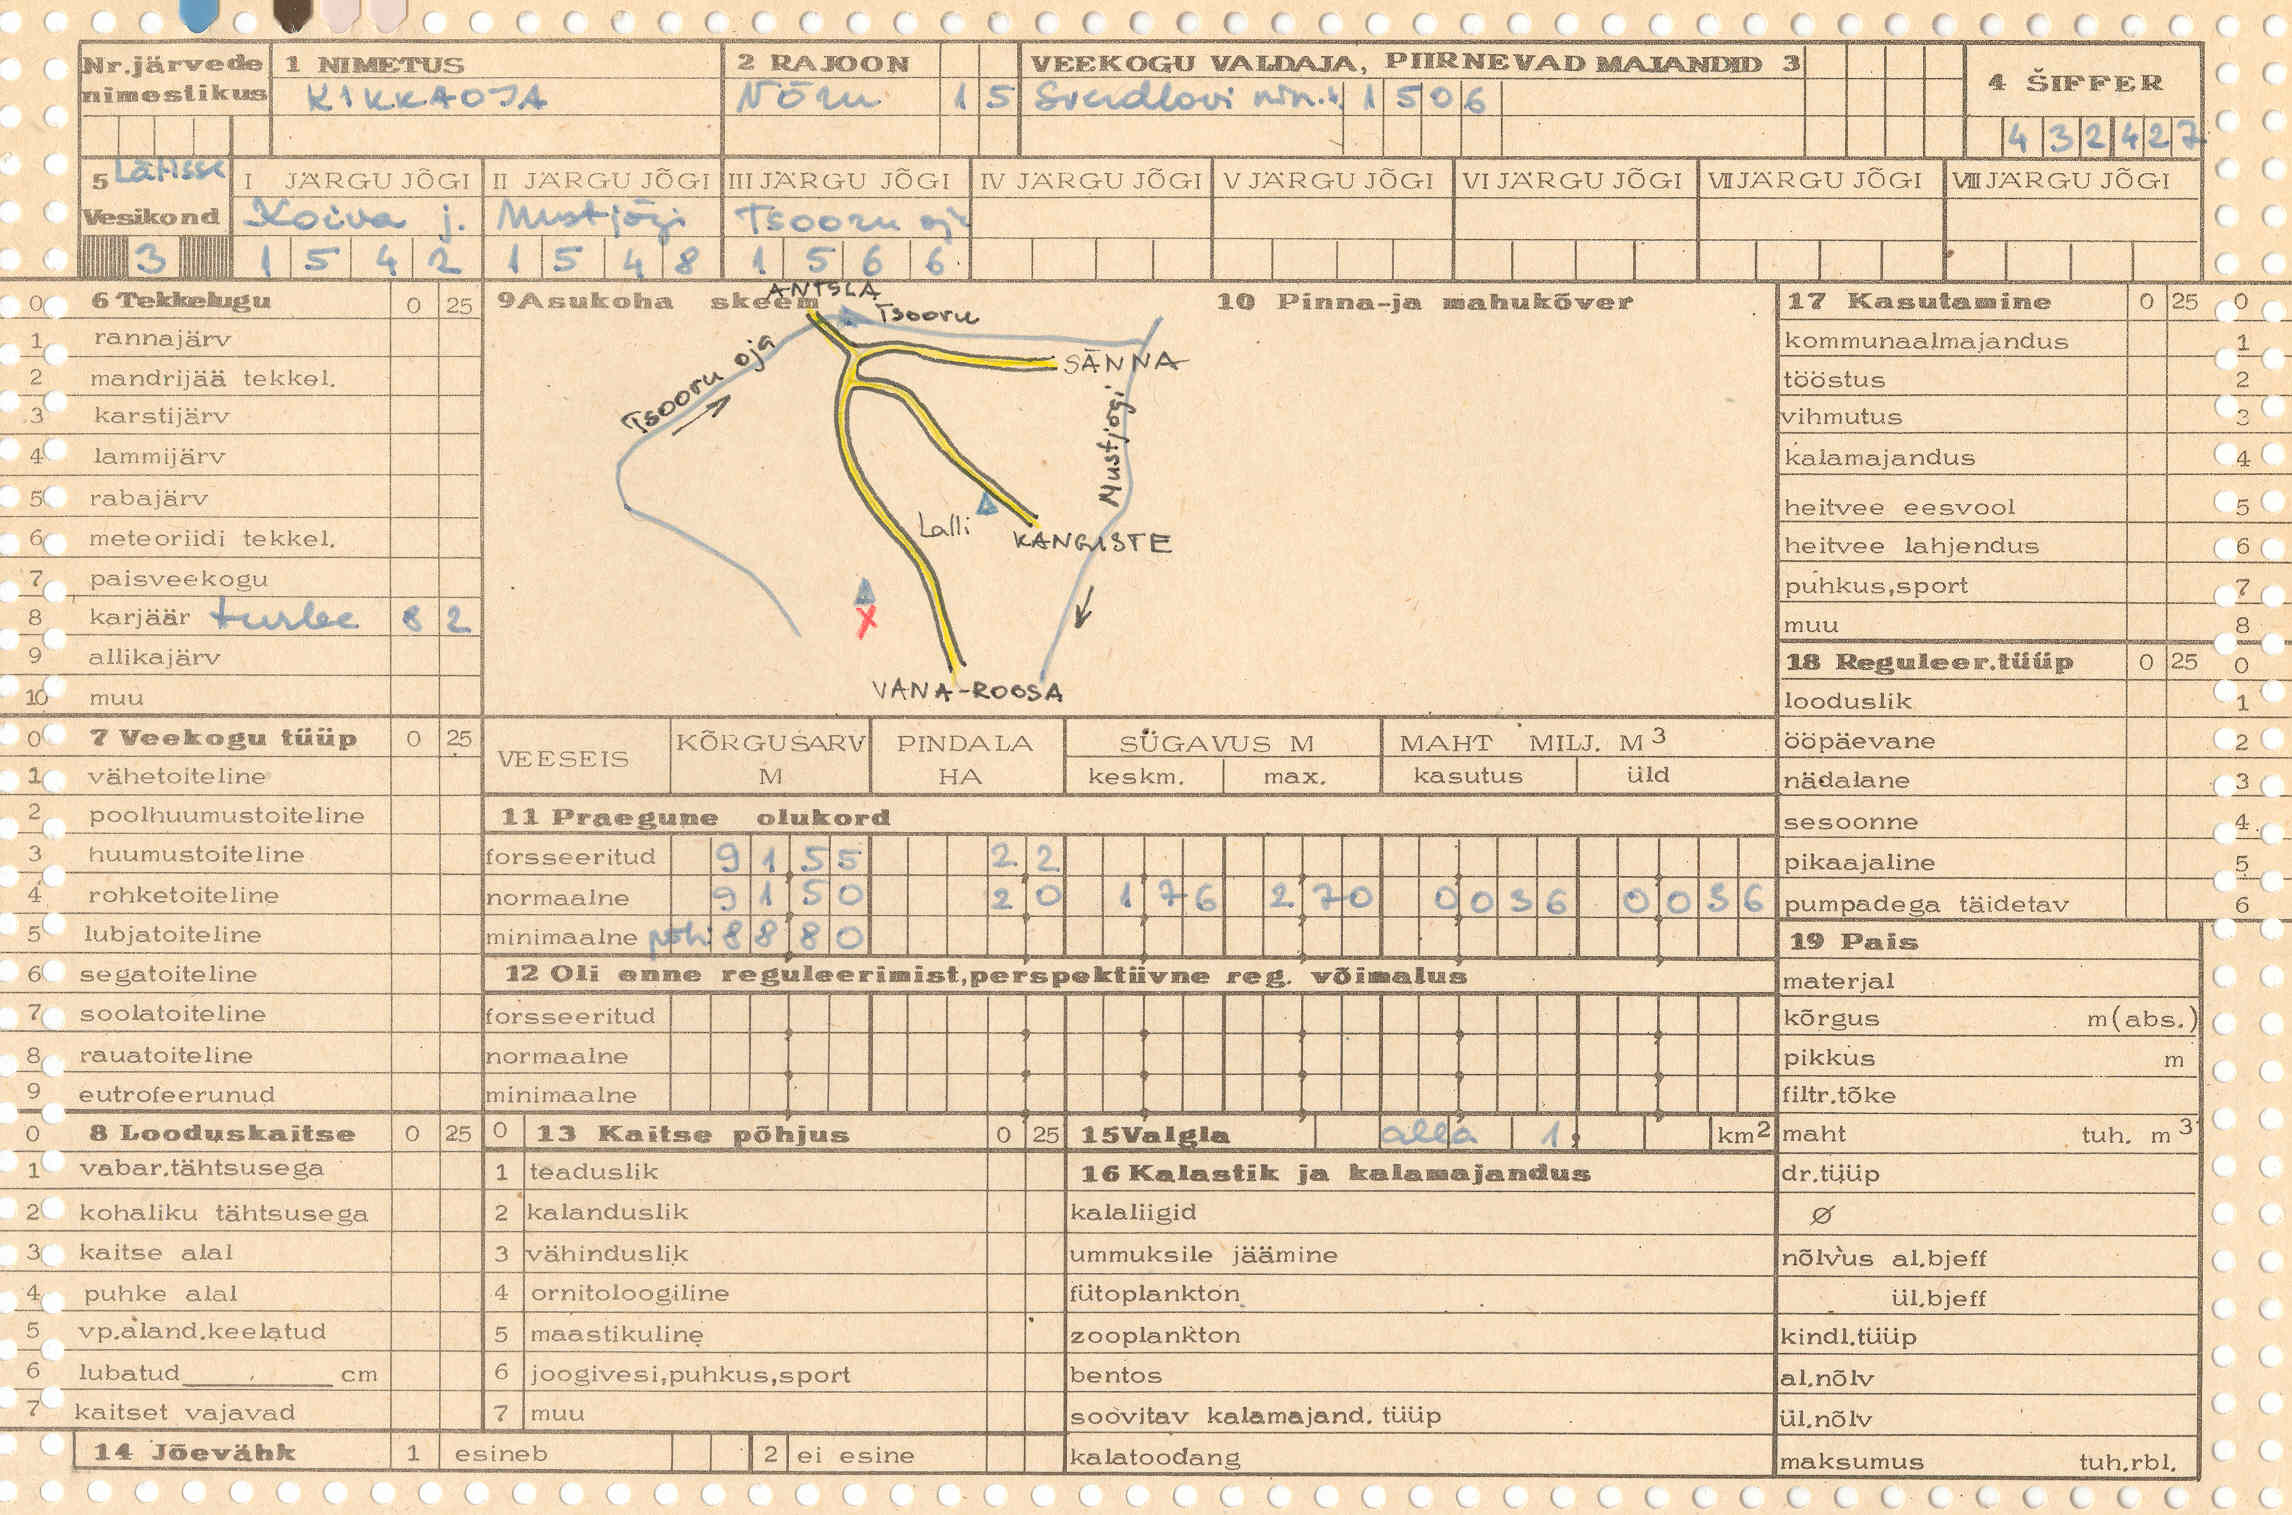 Nr.järvede nimestikus
1 NIMETUS
KIKKAOJA
2 RAJOON
Võru 15
VEEKOGU VALDAJA, PIIRNEVAD MAJANDID 3
Sverdlovi nim. 1506
4 ŠIFFER
432427
5 Lätisse
Vesikond
3
I JÄRGU JÕGI
Koiva j.
1542
II JÄRGU JÕGI
Mustjõgi
1548
III JÄRGU JÕGI
Tsooru oja
1566
IV JÄRGU JÕGI
V JÄRGU JÕGI
VI JÄRGU JÕGI
VII JÄRGU JÕGI
VIII JÄRGU JÕGI
0 6 Tekkelugu 0 25
1 rannajärv
2 mandrijää tekkel.
3 karstijärv
4 lammijärv
5 rabajärv
6 meteoriidi tekkel.
7 paisveekogu
8 karjäär turba 8 2
9 allikajärv
10 muu
9 Asukoha skeem
10 Pinna-ja mahukõver
ANTSLA
Tsooru
Tsooru oja
SÄNNA
Mustjõgi
Lalli
KANGISTE
X
VANA-ROOSA
17 Kasutamine 0 25 0
kommunaalmajandus 1
tööstus 2
vihmutus 3
kalamajandus 4
heitvee eesvool 5
heitvee lahjendus 6
puhkus,sport 7
muu 8
18 Reguleer.tüüp 0 25 0
looduslik 1
ööpäevane 2
nädalane 3
sesoonne 4
pikaajaline 5
pumpadega täidetav 6
0 7 Veekogu tüüp 0 25
1 vähetoiteline
2 poolhuumustoiteline
3 huumustoiteline
4 rohketoiteline
5 lubjatoiteline
6 segatoiteline
7 soolatoiteline
8 rauatoiteline
9 eutrofeerunud
VEESEIS
KÕRGUSARV M
PINDALA HA
SÜGAVUS M
keskm. max.
MAHT MILJ. M3
kasutus üld
11 Praegune olukord
forsseeritud 91,55 2,2
normaalne 91,50 2,0 1,76 2,70 0,036 0,036
minimaalne põhi 88,80
12 Oli enne reguleerimist,perspektiivne reg. võimalus
forsseeritud
normaalne
minimaalne
19 Pais
materjal
kõrgus m(abs.)
pikkus m
filtr.tõke
maht tuh. m3
dr.tüüp
Ø
nõlvus al.bjeff
ül.bjeff
kindl.tüüp
al.nõlv
ül.nõlv
maksumus tuh.rbl.
0 8 Looduskaitse 0 25
1 vabar.tähtsusega
2 kohaliku tähtsusega
3 kaitse alal
4 puhke alal
5 vp.aland.keelatud
6 lubatud cm
7 kaitset vajavad
0 13 Kaitse põhjus 0 25
1 teaduslik
2 kalanduslik
3 vähinduslik
4 ornitoloogiline
5 maastikuline
6 joogivesi,puhkus,sport
7 muu
15 Valgla alla 1, km2
16 Kalastik ja kalamajandus
kalaliigid
ummuksile jäämine
fütoplankton
zooplankton
bentos
soovitav kalamajand. tüüp
kalatoodang
14 Jõevähk 1 esineb 2 ei esine